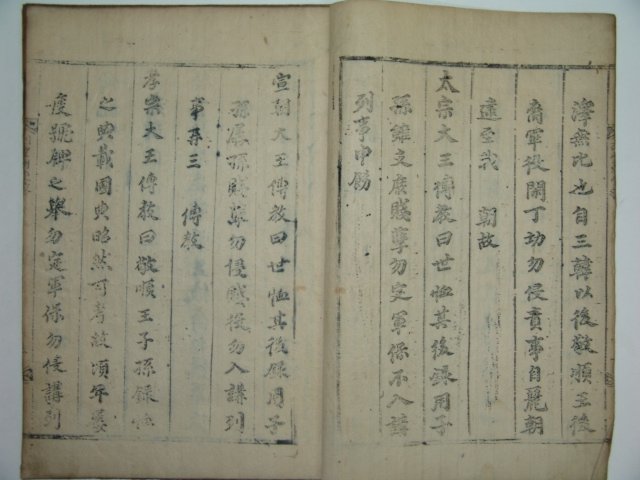 澤無比也自三韓以後敬順王後
裔軍役閑丁功勿侵責事自麗朝
逮至我 朝故
太宗大王傳教曰世恤其後錄用子
孫雖支庶賤孽勿定軍保不入講
列事申飭
宣朝大王傳教曰世恤其後錄用子
孫孱孫賤孽勿侵賤役勿入講列
事再三 傳教
孝宗大王傳教曰敬順王子孫錄恤
之典載國典昭然可考故頃年
疲 之舉勿定軍保勿侵講列